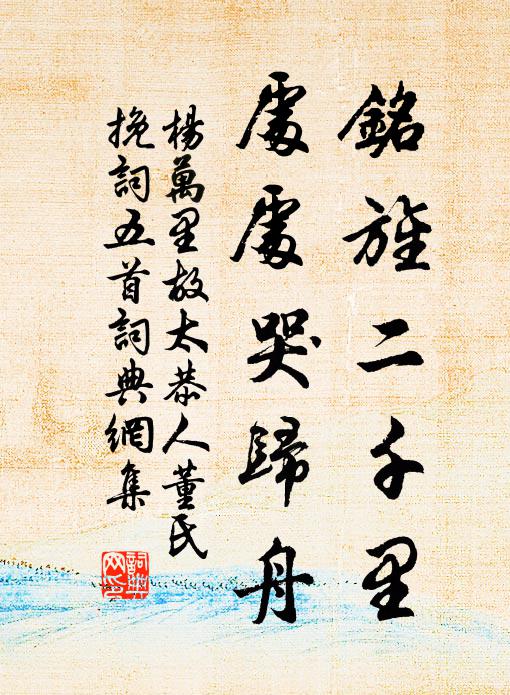 銘旌二千里
處處哭歸舟
楊萬里故太恭人董氏
挽詞五首詞典網集